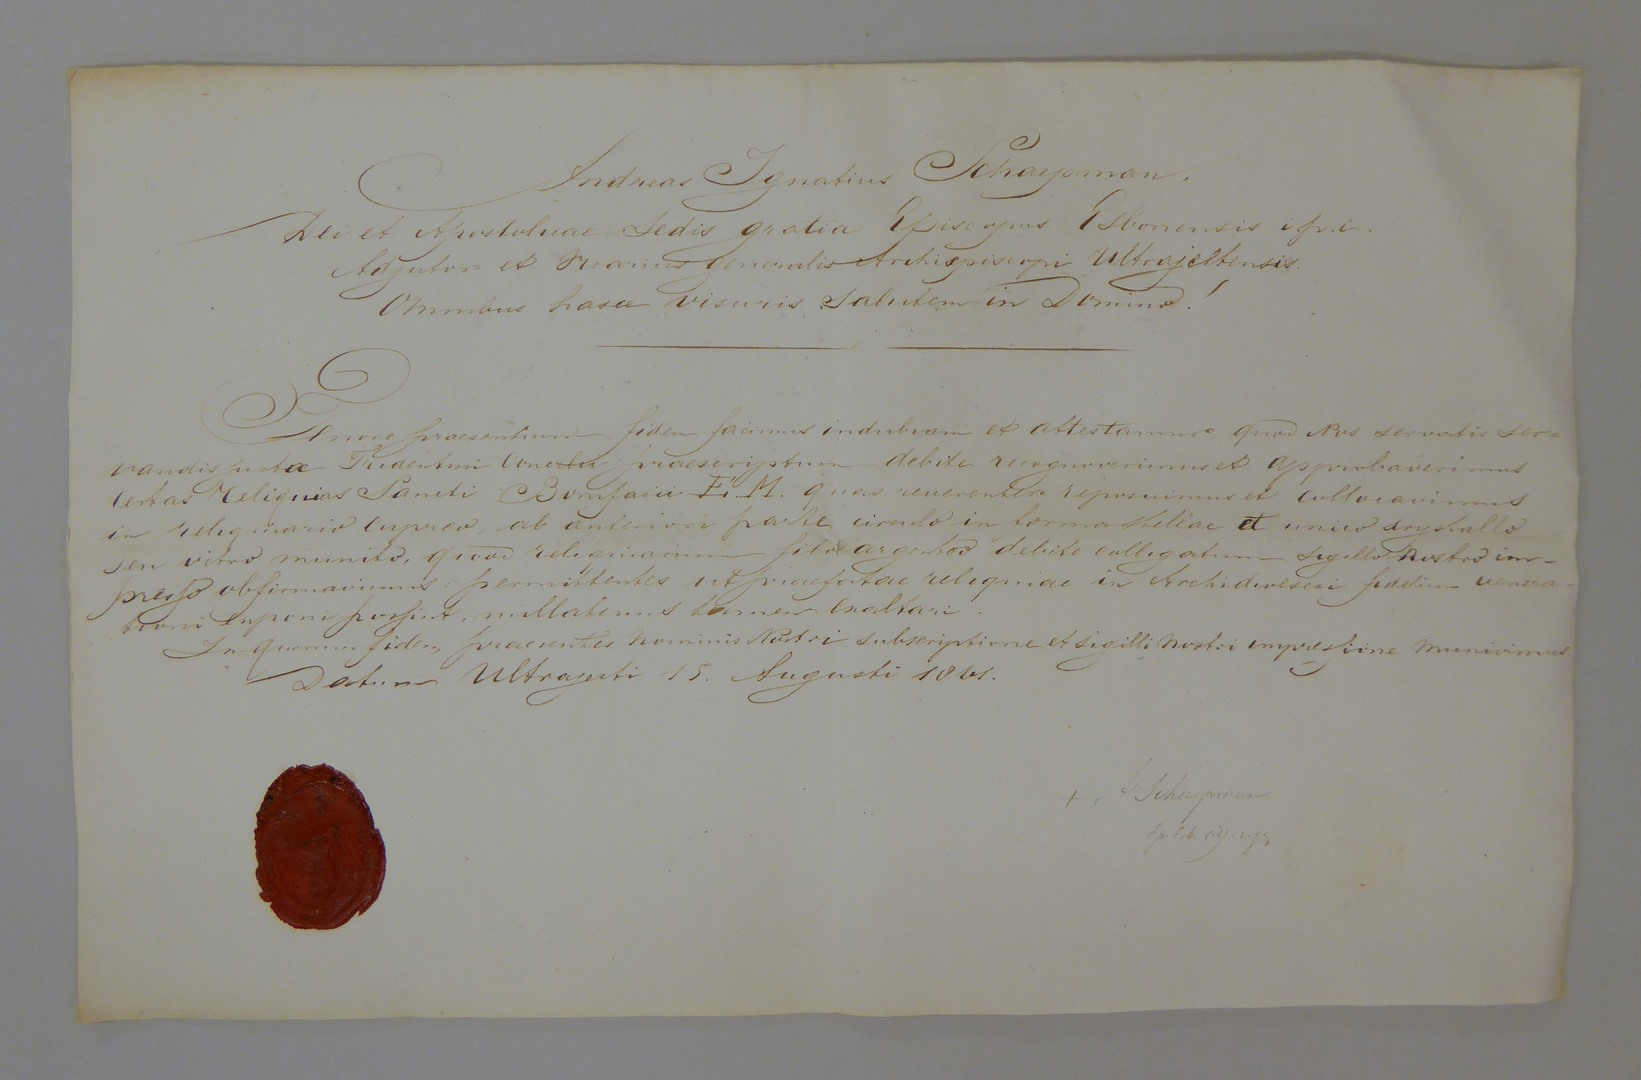 Andreas Ignatius Schaepman,
Dei et Apostolicae Sedis gratia Episcopus Esbonensis i.p.i.
Adjutor et Vicarius generalis Archiepiscopi Ultrajectensis.
Omnibus hasce visuris Salutem in Domino!
Tenore praesentium fidem facimus indubiam et attestamur quod Nos servatis ser=
vandis juxta Tridentini Concilii praescriptum debite recognoverimus et approbaverimus
certas reliquias Sancti Bonifacii E. M. quas reverenter reposuimus et collocavimus
in reliquiario cupreo, ab anteriori parte circulo in forma stellae et unico crystallo
seu vitro munito, quod reliquiarium filo argenteo debite colligatum sigillo nostro im-
presso obfirmavimus: permittentes ut praefatae reliquiae in Archidioecesi fidelium venera-
tioni exponi possint, nullatenus tamen exaltari.
In quorum fidem praesentes nominis Nostri subscriptione et sigilli nostri impressione munivimus
Datum Ultrajecti 15. Augusti 1861.
+ A Schaepman
Ep. Esb. adj.